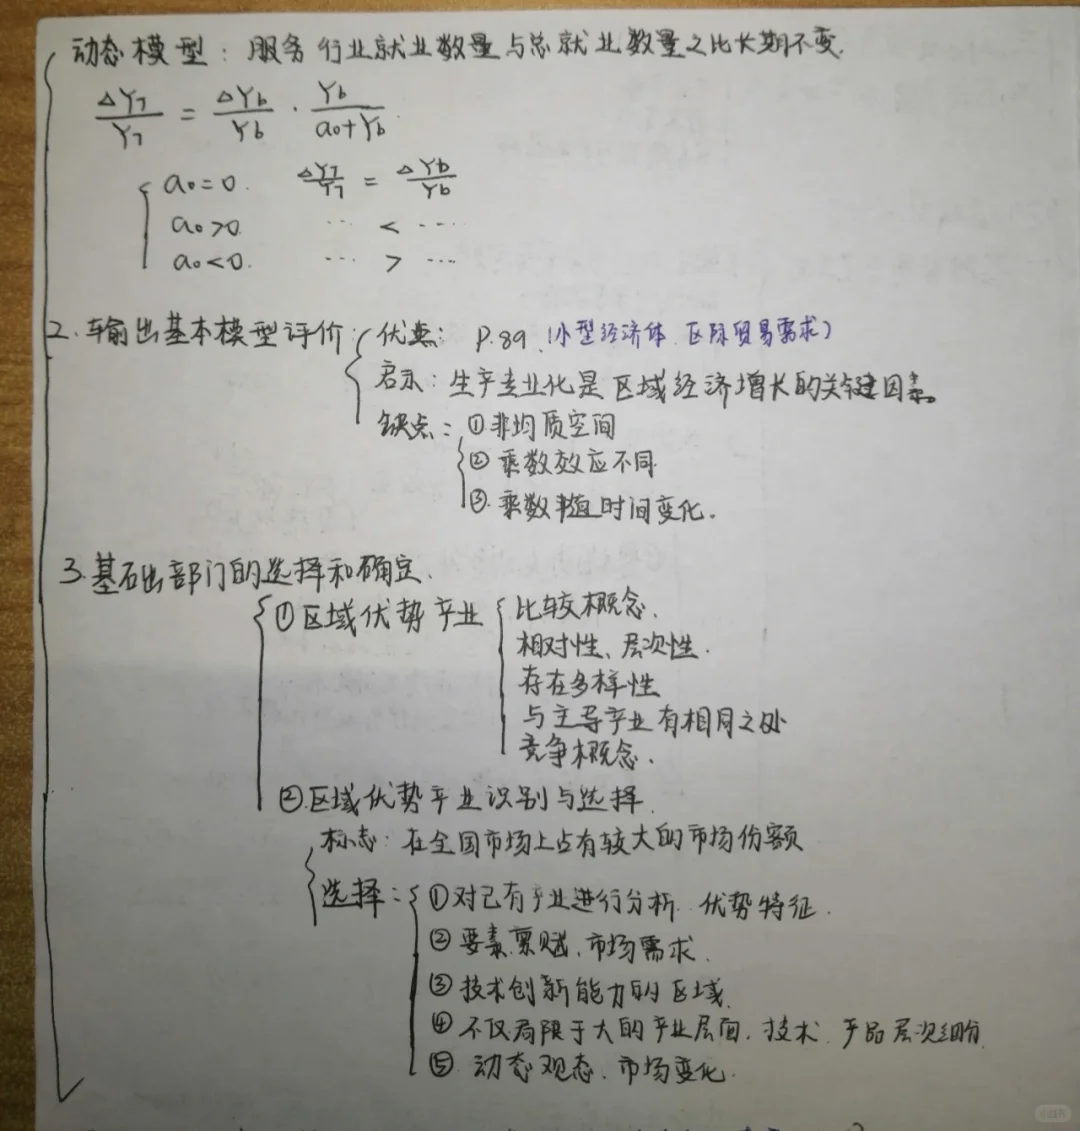 动态模型：服务行业就业数量与总就业数量之比长期不变.
ΔY₇/Y₇ = ΔYb/Yb · Yb/(a₀+Yb)
a₀=0. ΔY₇/Y₇ = ΔYb/Yb
a₀>0. ... < ...
a₀<0. ... > ...
2. 输出基本模型评价：优点： P.89.（小型经济体. 区际贸易需求）
启示：生产专业化是区域经济增长的关键因素。
缺点：①非均质空间
②乘数效应不同
③.乘数值时间变化.
3.基础部门的选择和确定.
①区域优势产业 比较概念.
相对性、层次性.
存在多样性
与主导产业有相同之处
竞争概念.
②.区域优势产业识别与选择.
标志：在全国市场上占有较大的市场份额
选择：①对已有产业进行分析. 优势特征.
②要素禀赋.市场需求.
③技术创新能力的区域.
④不仅局限于大的产业层面. 技术. 产品层次细分.
⑤动态观态.市场变化.
小红书